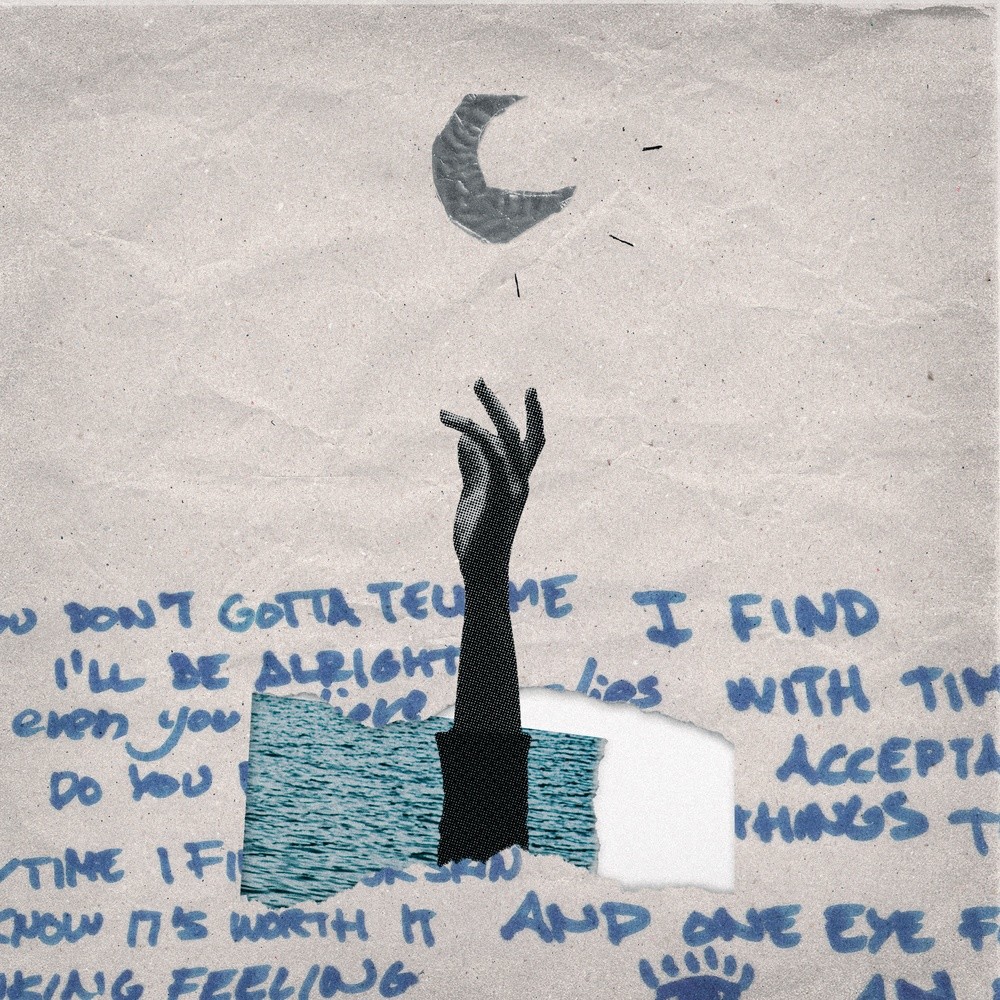 DON'T GOTTA TELL ME
I'LL BE ALRIGHT
even you lies
DO YOU
TIME I FI SKIN
KNOW IT'S WORTH IT
KING FEELING
I FIND
WITH TIM
ACCEPTA
THINGS T
AND ONE EYE F
AN